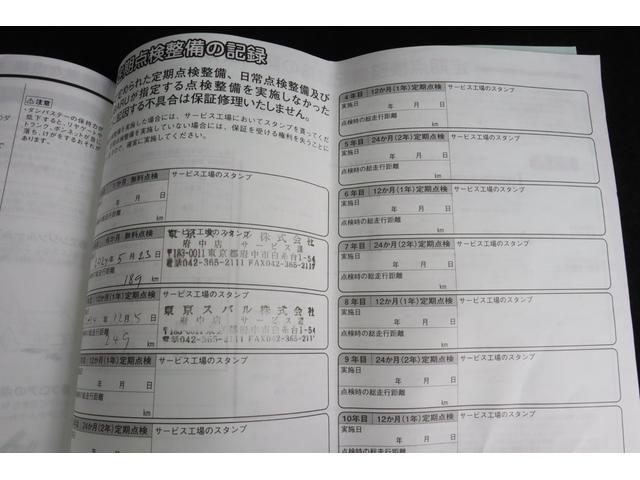 点検整備の記録
められた定期点検整備、日常点検整備及び
ARUが指定する点検整備を実施しなかった
起因する不具合は保証修理いたしません。
検整備を実施した場合には、サービス工場においてスタンプを貰ってくだ
検整備を実施していない場合には、保証を受ける権利を失うことに
ので、確実に実施してください。
注意
落ち、けがをするおそれが
あります。
無料点検
サービス工場のスタンプ
年 月 日
走行距離
km
6か月 無料点検
サービス工場のスタンプ
株式会社
府中店 サービス課
〒183-0011東京都府中市白糸台1-54
電話042-365-2111 FAX042-365-2117
年 5月 23日
走行距離
189 km
12か月(1年)定期点検
サービス工場のスタンプ
東京スバル株式会社
府中店 サービス課
〒183-0011東京都府中市白糸台1-54
電話042-365-2111 FAX042-365-2117
年 12月 5日
総走行距離
249 km
24か月(2年)定期点検
サービス工場のスタンプ
年 月 日
の総走行距離
km
12か月(1年)定期点検
サービス工場のスタンプ
年 月 日
総走行距離
km
24か月(2年)定期点検
サービス工場のスタンプ
年 月 日
4年目 12か月(1年)定期点検 サービス工場のスタンプ
実施日 年 月 日
点検時の総走行距離
km
5年目 24か月(2年)定期点検 サービス工場のスタンプ
実施日 年 月 日
点検時の総走行距離
km
6年目 12か月(1年)定期点検 サービス工場のスタンプ
実施日 年 月 日
点検時の総走行距離
km
7年目 24か月(2年)定期点検 サービス工場のスタンプ
実施日 年 月 日
点検時の総走行距離
km
8年目 12か月(1年)定期点検 サービス工場のスタンプ
実施日 年 月 日
点検時の総走行距離
km
9年目 24か月(2年)定期点検 サービス工場のスタンプ
実施日 年 月 日
点検時の総走行距離
km
10年目 12か月(1年)定期点検 サービス工場のスタンプ
実施日 年 月 日
点検時の総走行距離
km